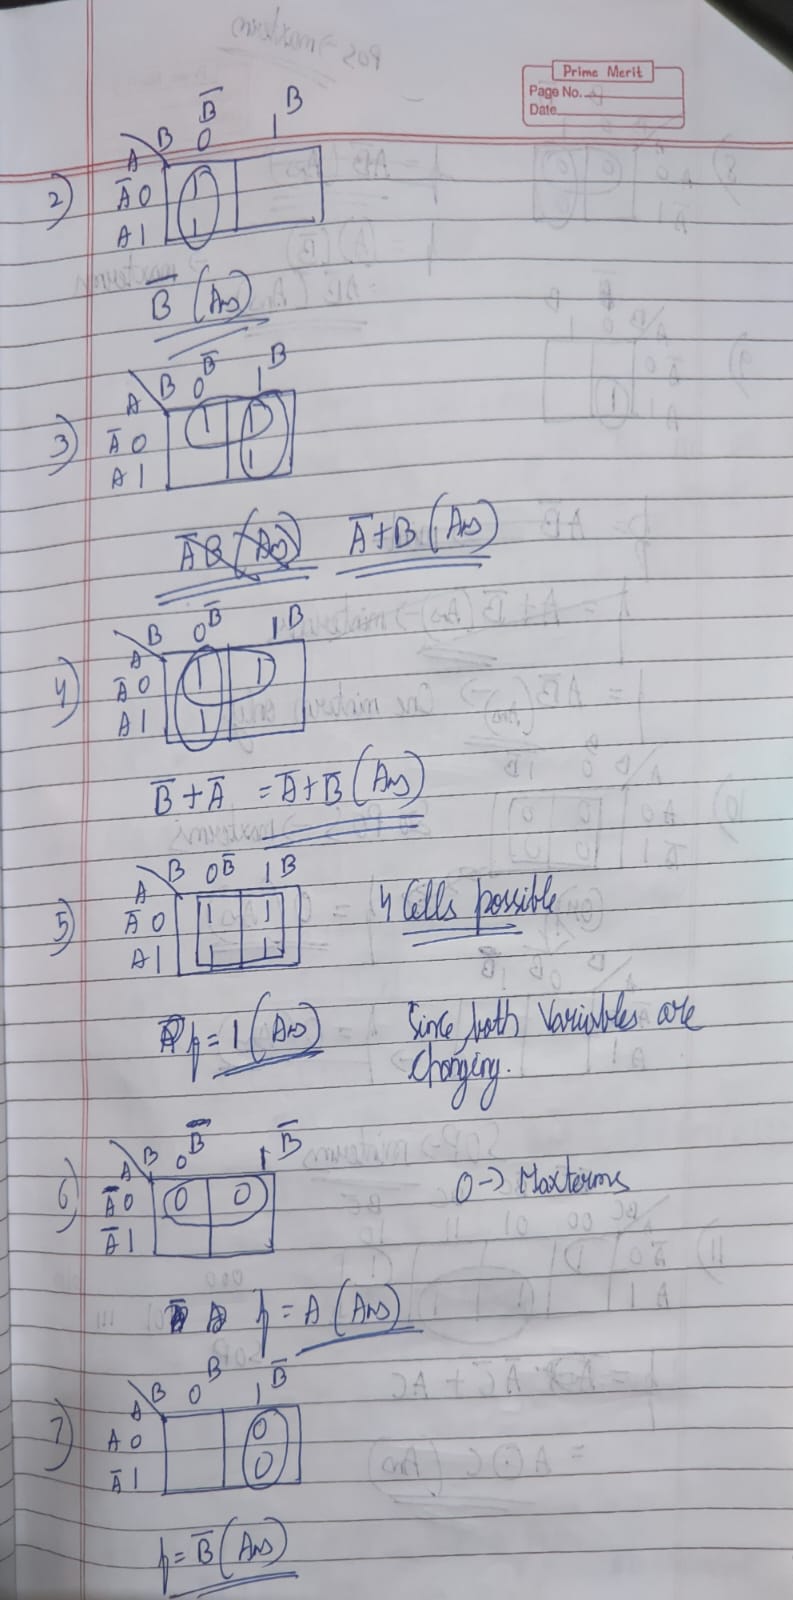 Prime Merit
Page No.
Date
B̅ B
A B 0 1
2) A̅ 0 1
A 1 1
B̅ (Ans)
B̅ B
A B 0 1
3) A̅ 0 1 1
A 1 1
A̅B (Ans) A̅+B (Ans)
A B 0 B̅ 1 B
4) A̅ 0 1 1
A 1 1
B̅ + A̅ = A̅+B̅ (Ans)
A B 0 B̅ 1 B
5) A̅ 0 1 1 4 Cells possible
A 1 1 1
f = 1 (Ans) Since both variables are
changing.
B̅ B̅
A B 0 1
6) A̅ 0 0 0 0 → Maxterms
A̅ 1
f = A (Ans)
B B̅
A B 0 1
7) A 0 0
A̅ 1 0
f = B̅ (Ans)